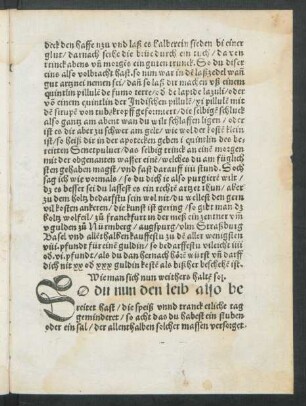 deck den haffe nzu vnd laß es halber ein sieden bi einer
glut / darnach seihe die brüe durch ein tuch / da von
trinck abens vñ morgēs ein guten trunck. So du diser
eins also volbracht hast. so nun war in dē laßzedel wañ
gut artznei nemen sei / dañ so laß dir machen vß einem
quintlin pillule de fumo terre / oď de lapide lazuli / oder
võ einem quintlin der Indischen pillulē / xi pillulē mit
dē sirupē von
also gantz am abent wan du wilt schlaffen ligen / oder
ist es dir aber zu schwer am gelt / wie wol der kostē klein
ist / so heiß dir in der apotecken geben i quintlin des be
reiten / das selbig trinck an eim morgen
mit der obgenanten wasser einē / welches du am füglich
sten gehaben magst / vnd fast darauff iiii stund. Doch
sag ich wie vormals / so du dich ie also purgierē wilt /
dz es besser sei du lassest es ein rechtē artzet thun / aber
zu dem holtz bedarffstu sein wol nit / du wellest den gern
vil kosten ankeren / die kunst ist gering / so gibt man dz
holtz wolfeil / zů franckfurt in der meß ein zentner vm
v gulden zů Nürmberg / augspurg / vlm Straßburg
Basel vnd alles halben kauffestu zu dē aller wenigsten
viii. pfundt für einē guldin / so bedarffestu vileicht iiii
oď. vi. pfundt / ob du dan hernach hörē würst vñ darff
dich nit xx oď xxx guldin kostē als bißher beschehē ist.
Wie man sich nun weithers halte sol.
So du nun den leib also be
reitet hast / die speiß vnnd tranck etliche tag
geminderet / so acht das du habest ein stuben
oder ein sal / der allenthalben solcher massen versorget.